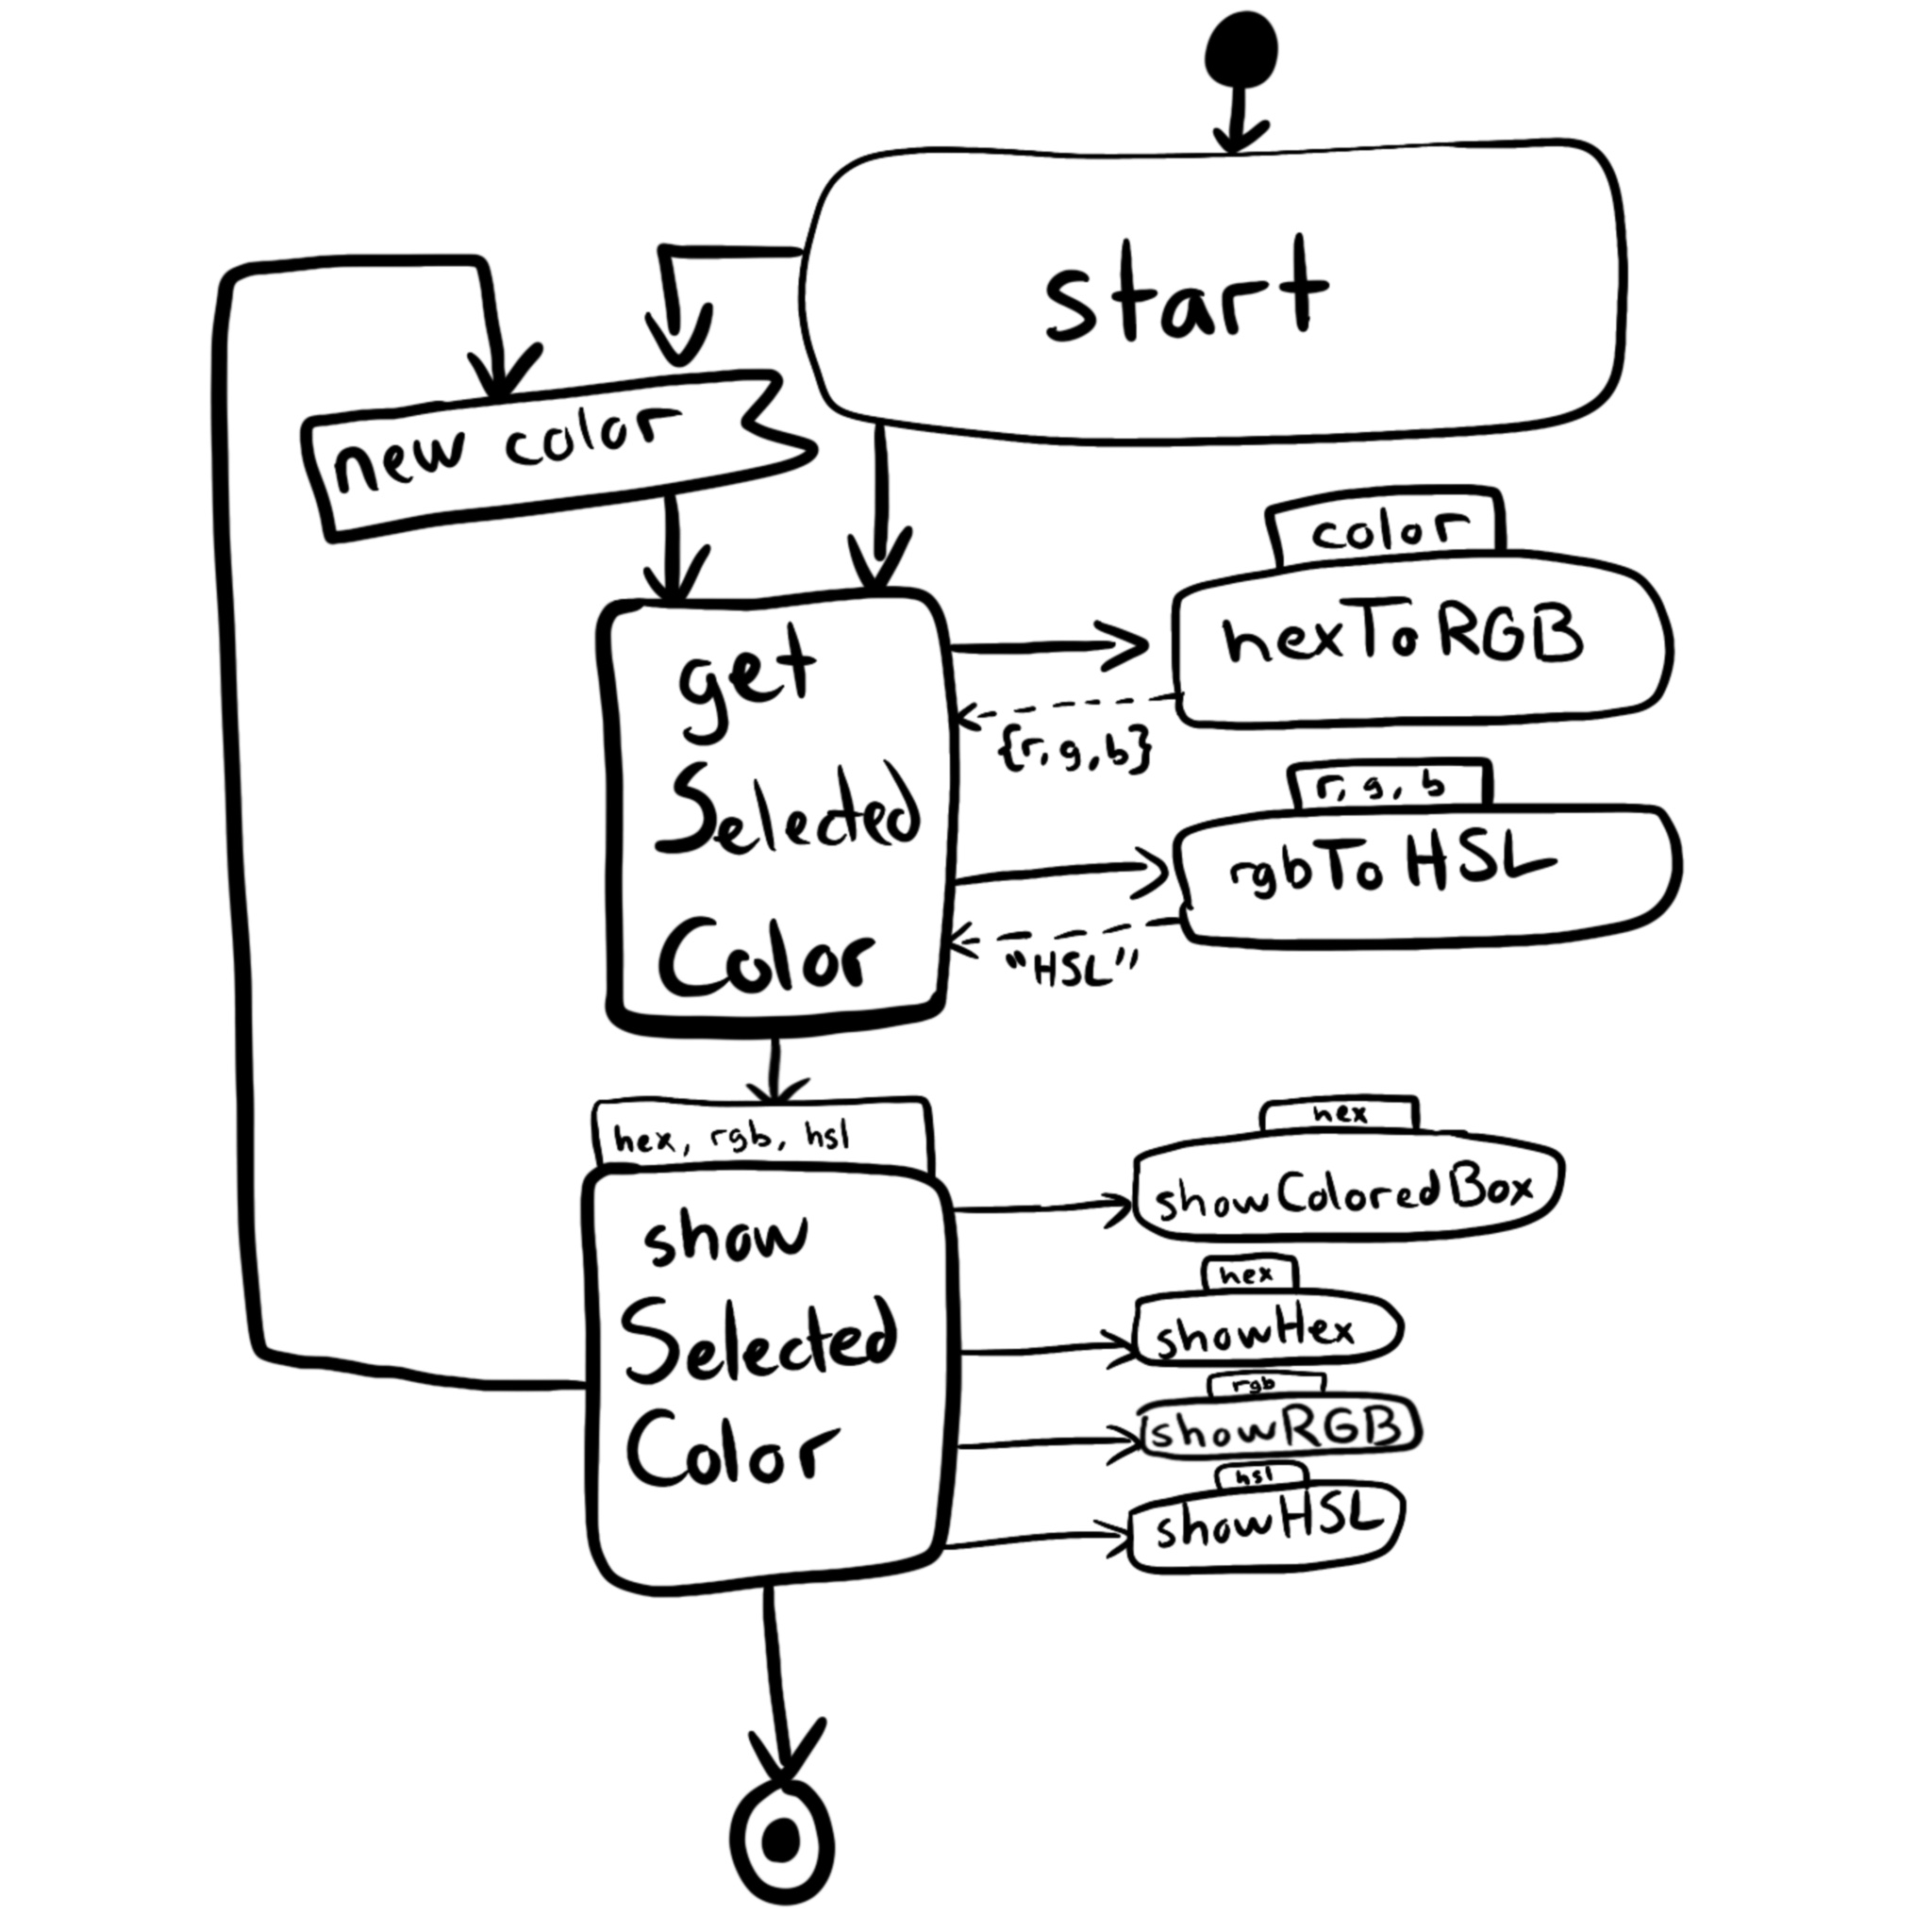 start
new color
color
hexToRGB
get
Selected
Color
{r, g, b}
r, g, b
rgbToHSL
"HSL"
hex, rgb, hsl
show
Selected
Color
hex
showColoredBox
hex
showHex
rgb
showRGB
hsl
showHSL